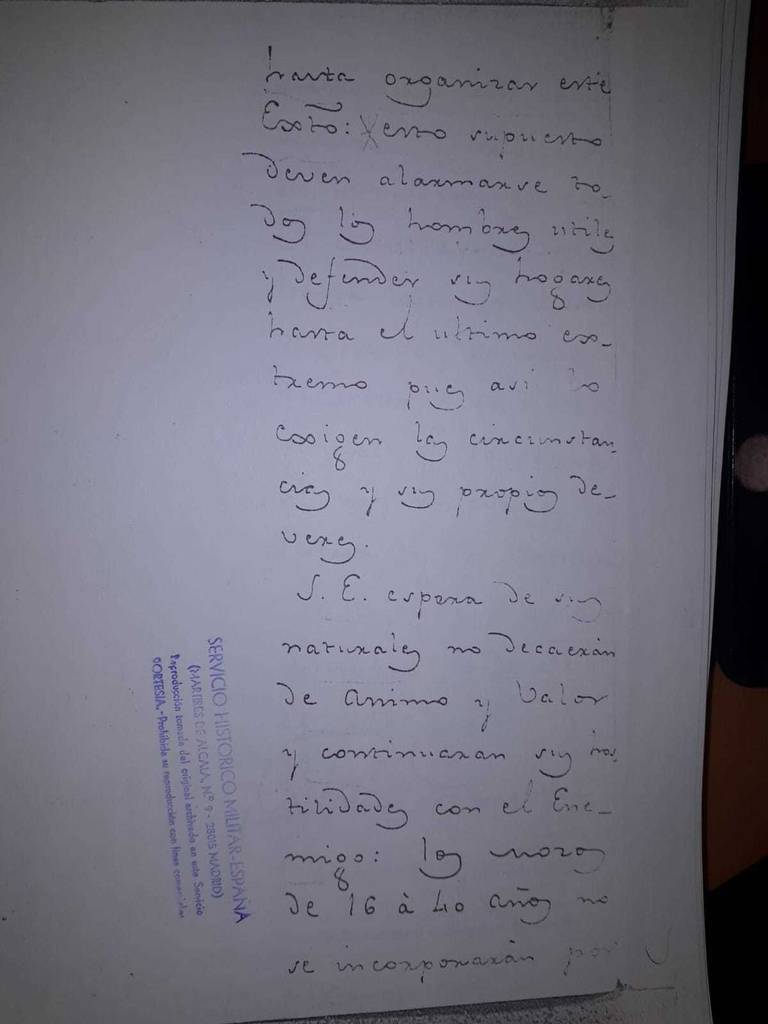 hasta organizar este
Exto: esto supuesto
deven alarmarse to-
dos los hombres utiles
y defender sus hogares
hasta el ultimo ex-
tremo pues asi lo
exsigen las circunstan
cias y sus propios de-
veres.
S. E. espera de sus
naturales no decaeràn
de animo y Valor
y continuaran sus hos
tilidades con el Ene-
migo: los mozos
de 16 à 40 años no
se incorporaràn por
SERVICIO HISTORICO MILITAR-ESPAÑA
(MARTIRES DE ALCALA, Nº 9 - 28015 MADRID)
Reproducción tomada del original archivado en este Servicio
CORTESIA.-Prohibida su reproducción con fines comerciales